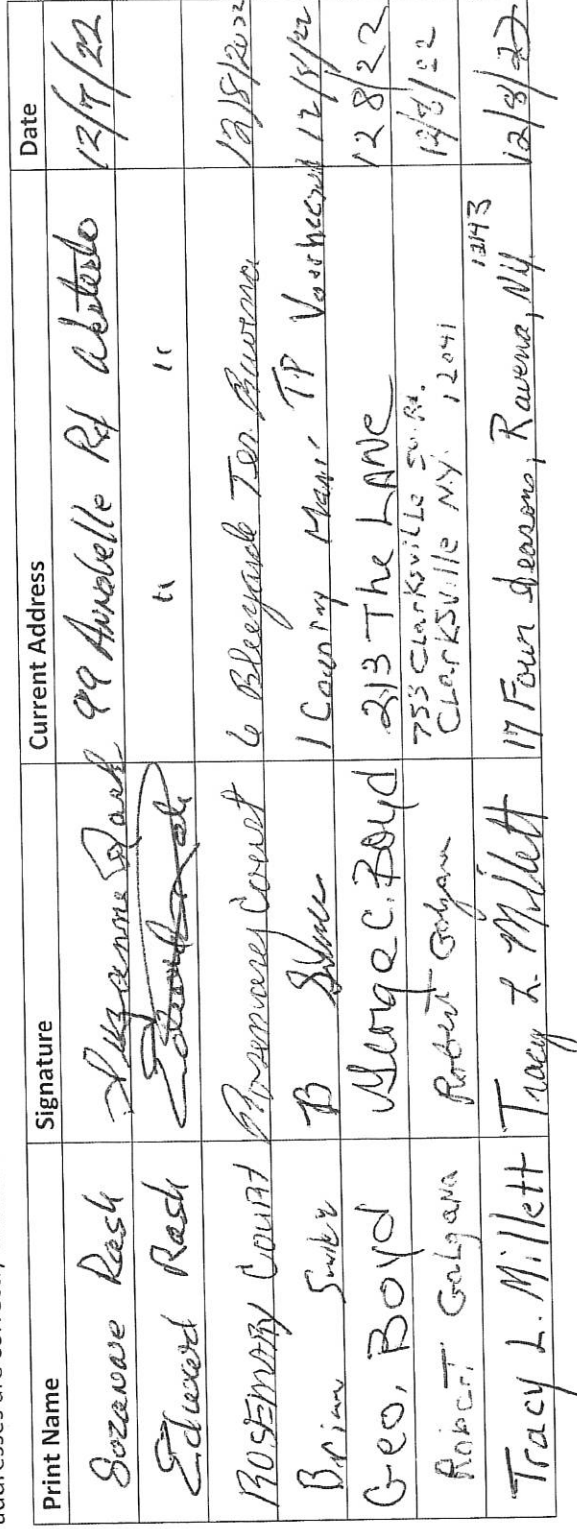 addresses are correct,
Print Name Signature Current Address Date
Suzanne Rash Suzanne Rash 99 Annabelle Rd 12/7/22
Edward Rash Edward Rash " " 
ROSEMARY COURT Rosemarey Court 6 Bleeyarde Ter. Ravena 12/8/2022
Brian B 1 Country Manr. TP 12/8/22
Geo. BOYD George C. Boyd 213 The LANE 12 8/22
Robert Galgana Robert Galgana 753 Clarksville So. Rd. 12/8/22
Clarksville NY. 12041
Tracy L. Millett Tracy L. Millett 17 Four Seasons, Ravena, NY. 12143 12/8/22